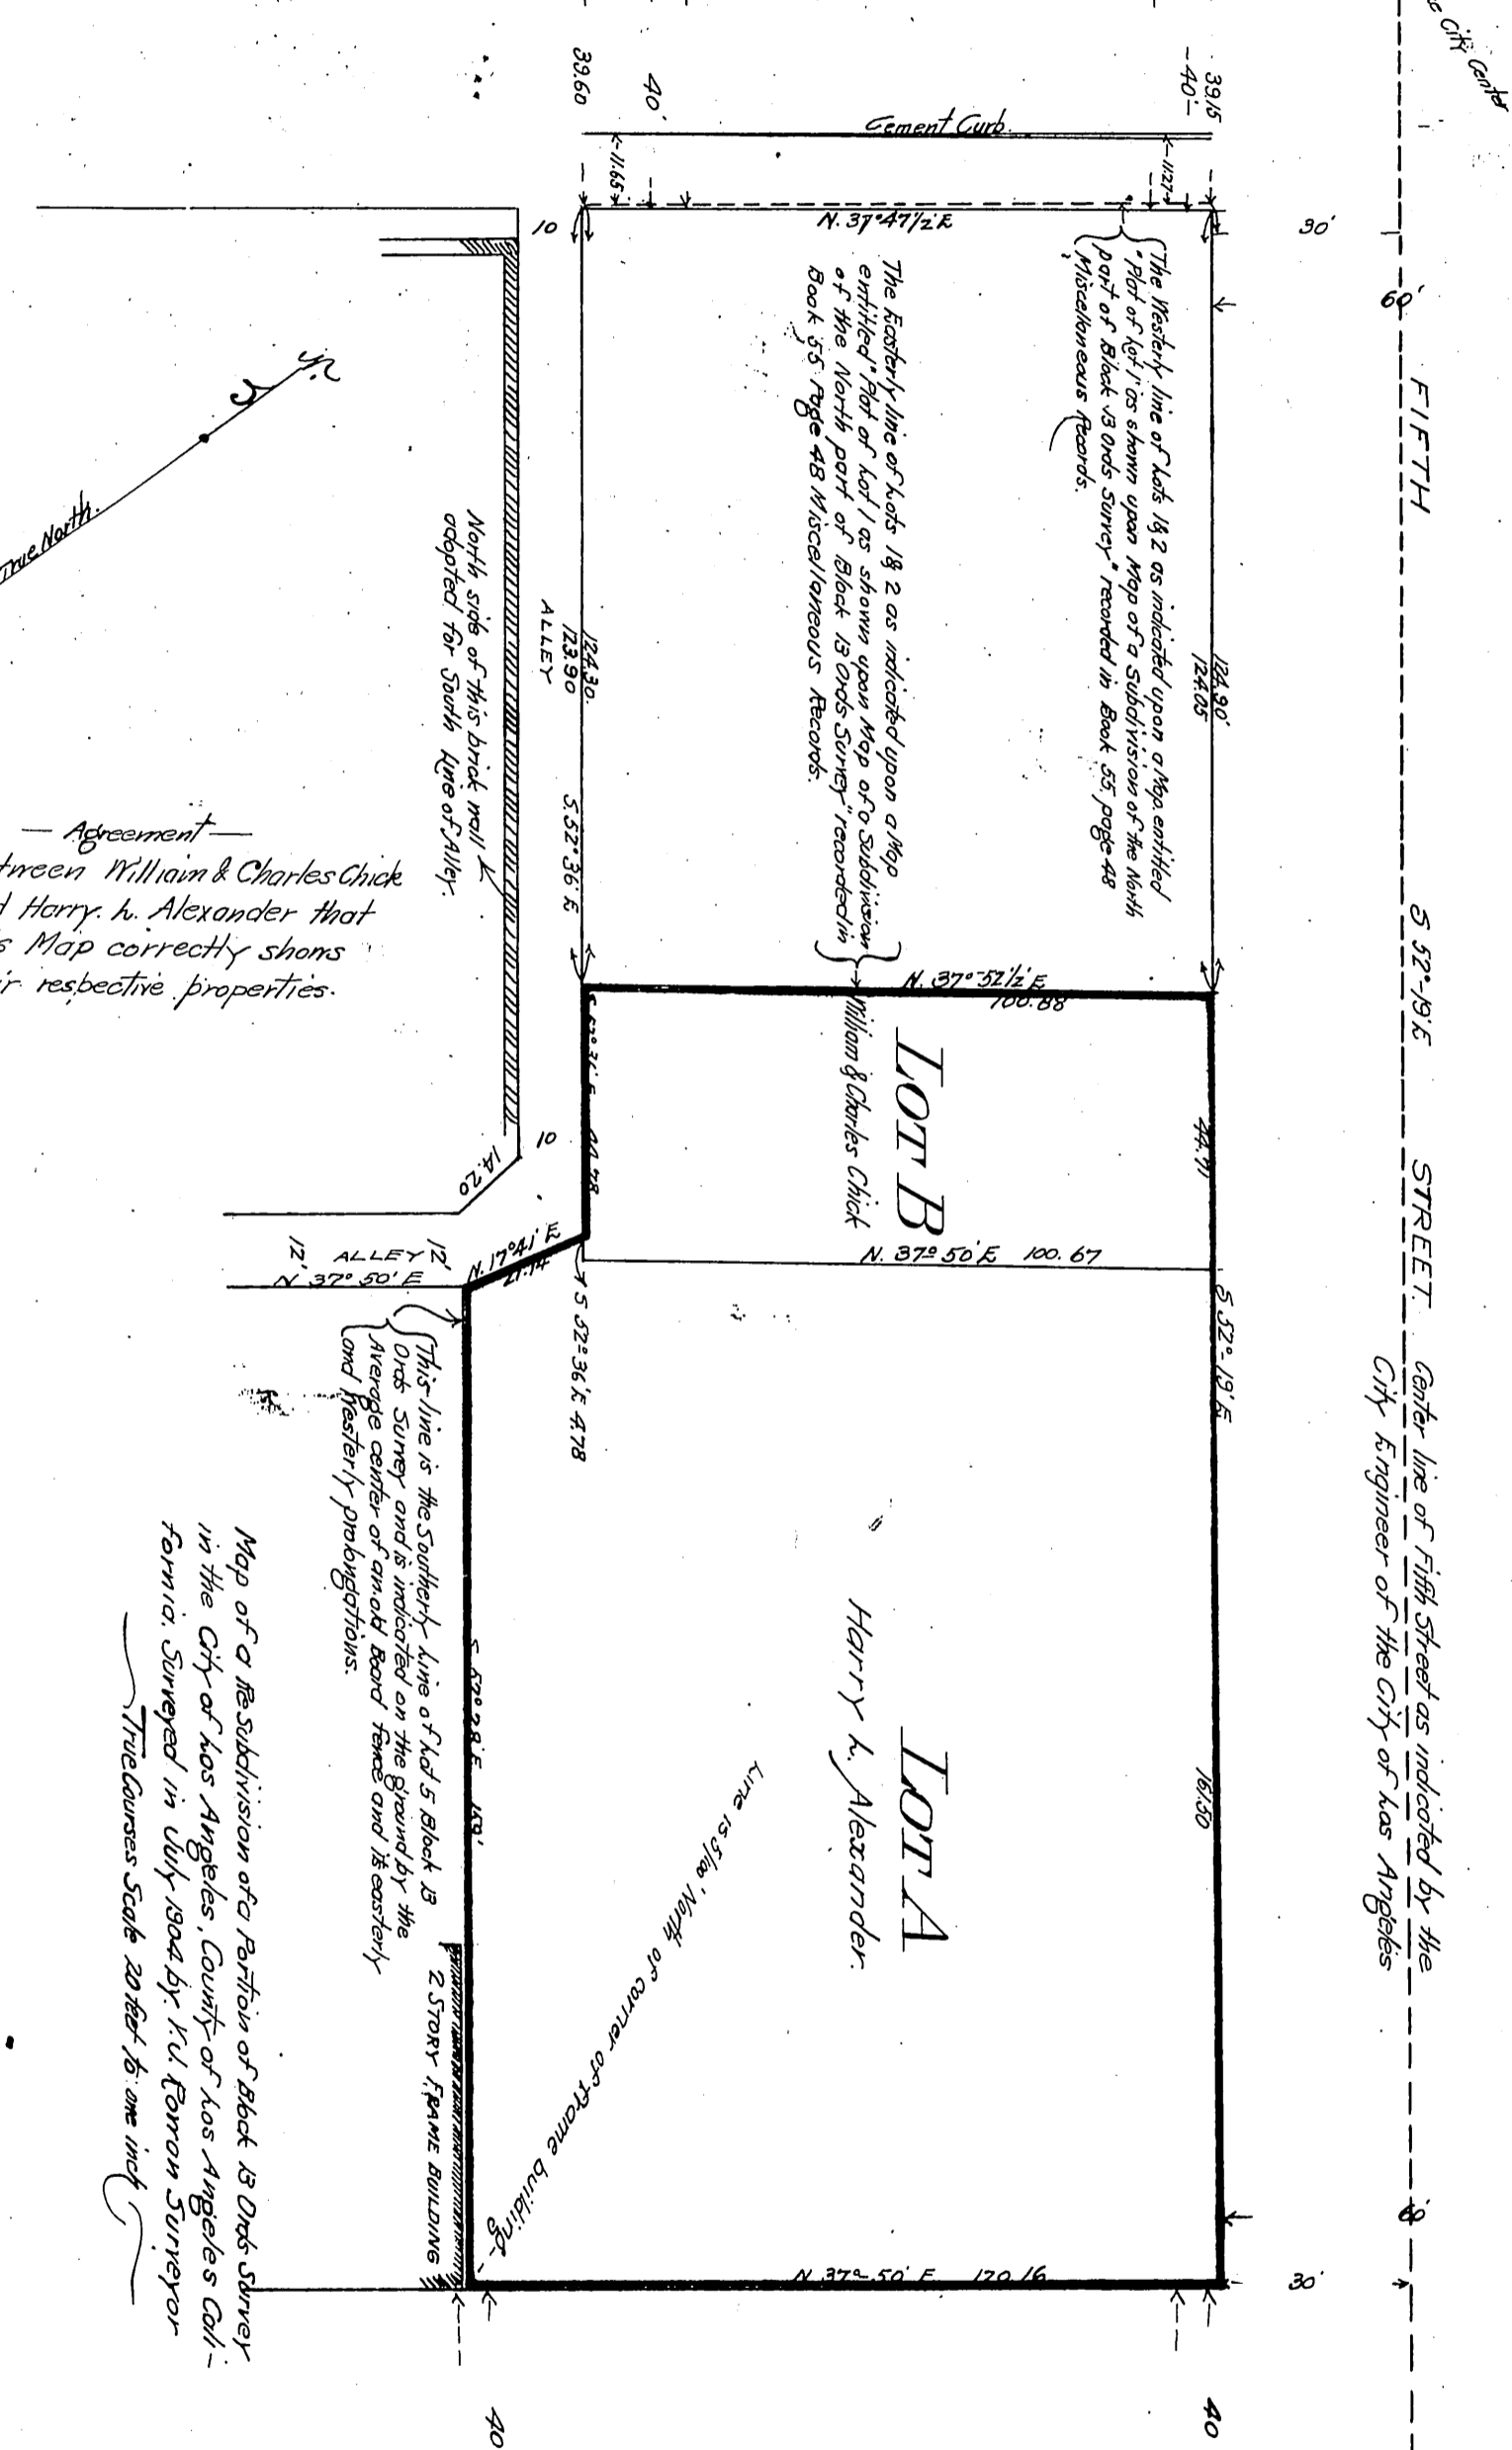 FIFTH
S 52°-19'E
STREET.
Center line of Fifth Street as indicated by the
City Engineer of the City of Los Angeles
City Center
60'
30'
60'
30'
39.15
-40'-
40'
39.60
Cement Curb.
11.27
11.65
N. 37°47½'E
The Westerly line of Lots 1&2 as indicated upon a Map entitled
"Plat of Lot 1" as shown upon Map of a Subdivision of the North
part of Block 13 Ords Survey" recorded in Book 55, page 48
Miscellaneous Records.
The Easterly line of Lots 1& 2 as indicated upon a Map
entitled "Plat of Lot 1 as shown upon Map of a Subdivision
of the North part of Block 13 Ords Survey" recorded in
Book 55 Page 48 Miscellaneous Records.
124.90'
124.05
124.30.
123.90
S.52°36'E
ALLEY
10
10
North side of this brick wall
adopted for South Line of Alley.
True North.
— Agreement —
William & Charles Chick
Harry. L. Alexander that
Map correctly shows
respective properties.
N. 37°-52½'E
100.88
LOT B
William & Charles Chick
44.71
S 52°36'E 44.78
N. 37° 50'E 100.67
14.20
12'
ALLEY
12'
N 37° 50' E
N. 17°41' E
21.14
S 52°-36'E 4.78
S 52°-19'E
161.50
LOT A
Harry L. Alexander.
This line is the Southerly Line of Lot 5 Block 13
Ords Survey and is indicated on the ground by the
Average center of an old Board fence and its easterly
and Westerly prolongations.
S 52°28'E 159'
Line is 5/100' North of corner of Frame building
2 STORY FRAME BUILDING
N 37°-50' E 120.16
40
40
Map of a Resubdivision of a Portion of Block 13 Ords Survey
in the City of Los Angeles, County of Los Angeles Cali-
fornia. Surveyed in July 1904 by. Surveyor
True Courses Scale 20 feet to one inch